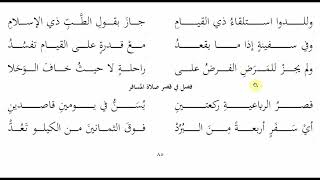 وللدوا استلقاءُ ذي القيامِ جازَ بقولِ الطَّبِّ ذي الإسلامِ
وفي سفينةٍ إذا ما يقعدُ معْ قدرةٍ على القيام تفسُدُ
ولم يجزْ للمَرَضِ الفرضُ على راحلةٍ لا حيثُ خافَ الوَحَلا
فصل في قصر صلاة المسافر
قصرُ الرباعيةِ ركعتينِ يُسَنُّ في يومينِ قاصدينِ
أيْ سَفَرٍ أربعةً مِنَ البُرُدْ فوقَ الثمانينَ من الكيلو تُعَدُّ
٨٥